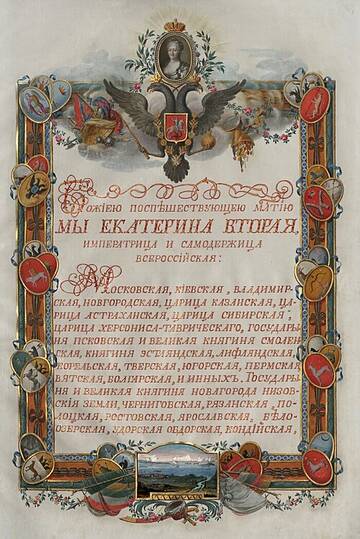 Божіею поспѣшествующею мл҃тію
МЫ ЕКАТЕРИНА ВТОРАЯ,
ИМПЕРАТРИЦА И САМОДЕРЖИЦА
ВСЕРОССІЙСКАЯ:
МОСКОВСКАЯ, КІЕВСКАЯ, ВЛАДИМИР-
СКАЯ, НОВГОРОДСКАЯ, ЦАРИЦА КАЗАНСКАЯ, ЦА-
РИЦА АСТРАХАНСКАЯ, ЦАРИЦА СИБИРСКАЯ,
ЦАРИЦА ХЕРСОНИСА-ТАВРИЧЕСКАГО, ГОСУДАРЫ-
НЯ ПСКОВСКАЯ И ВЕЛИКАЯ КНЯГИНЯ СМОЛЕН-
СКАЯ, КНЯГИНЯ ЭСТЛЯНДСКАЯ, ЛИФЛЯНДСКАЯ,
КОРЕЛЬСКАЯ, ТВЕРСКАЯ, ЮГОРСКАЯ, ПЕРМСКАЯ
ВЯТСКАЯ, БОЛГАРСКАЯ И ИННЫХЪ, ГОСУДАРЫ-
НЯ И ВЕЛИКАЯ КНЯГИНЯ НОВАГОРОДА НИЗОВ-
СКІЯ ЗЕМЛИ, ЧЕРНИГОВСКАЯ, РЯЗАНСКАЯ, ПО-
ЛОЦКАЯ, РОСТОВСКАЯ, ЯРОСЛАВСКАЯ, БѢЛО-
ОЗЕРСКАЯ, УДОРСКАЯ ОБДОРСКАЯ, КОНДІЙСКАЯ,